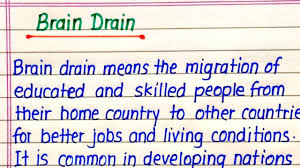 Brain Drain
Brain drain means the migration of
educated and skilled people from
their home country to other countrie
for better jobs and living conditions.
It is common in developing nations